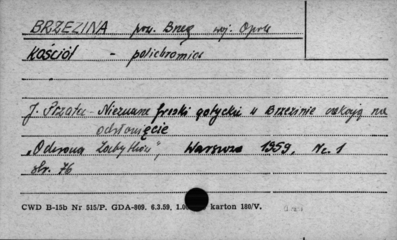 BRZEZINA pow. Brzeg woj. Opole
KOŚCIÓŁ - polichromies
J. Przała - Nieznane freski gotyckie w Brzezinie czekają na
odsłonięcie
Warszawa 1959, Nr. 1
str. 76
CWD B-15b Nr 515/P. GDA-809. 6.3.59. karton 180/V.